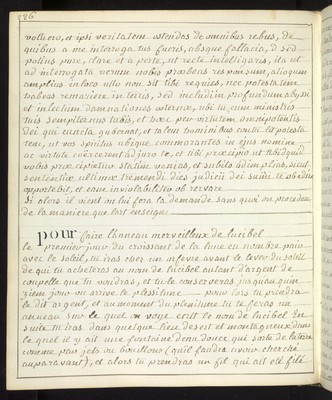 286
volhero, et ipsi veritatem ostendas de omnibus rebus, de
quibus a me interrogatus fueris, absque fallacia, sed
potius pure, clare et a perte, ut recte intelligaris, ita ut
ad interrogata verum nobis præbeas responsum, alioquin
amplius in loco isto non sit tibi requies, nec potestatem
habeas remanere in terris, sed in ludum profundum abyssi
et infectum damnationes æternæ, ubi tu cum ministris
tuis sempiternus tabis, et hoec per virtutem omnipotentis
dei qui cuncta gubernat, et talem hominibus contulit potesta
tem, ut vos spiritus ubique commorantes in ejus nomine
ac virtute coërcerent adjuro te, et tibi præcipio ut tibi quid
vobis præ cepitur statim venias, et subito adimpleas, secut
sententiæ ultimæ tremendi dies judicii dei summi te obedire
oportebit, et eam inviolabiliter observare
si alors il vient on lui fera la demande sans quoi on procedera
de la maniere que l'art enseigne
pour faire l'anneau merveilleux de lucibel
le premier jour du croissant de la lune en nombre pair
avec le soleil, tu iras chez un orfevre avant le lever du soleil
de qui tu acheteras au nom de lucibel autant d'argent de
coupelle que tu voudras, et tu le conserveras jusqu'au quin
zieme jour ou arrive le plenilune — pour lors tu prendra
le dit argent, et au moment du plenilune tu te feras un
anneau sur le quel on voye ecrit le nom de lucibel en
suite tu iras dans quelque lieu desert et montagneux dans
le quel il y ait une fontaine d'eau douce qui sorte de la terre
comme par jets ou bouillons (qu'il faudra avoir cherché
auparavant), et alors tu prendras un fil qui ait été filé